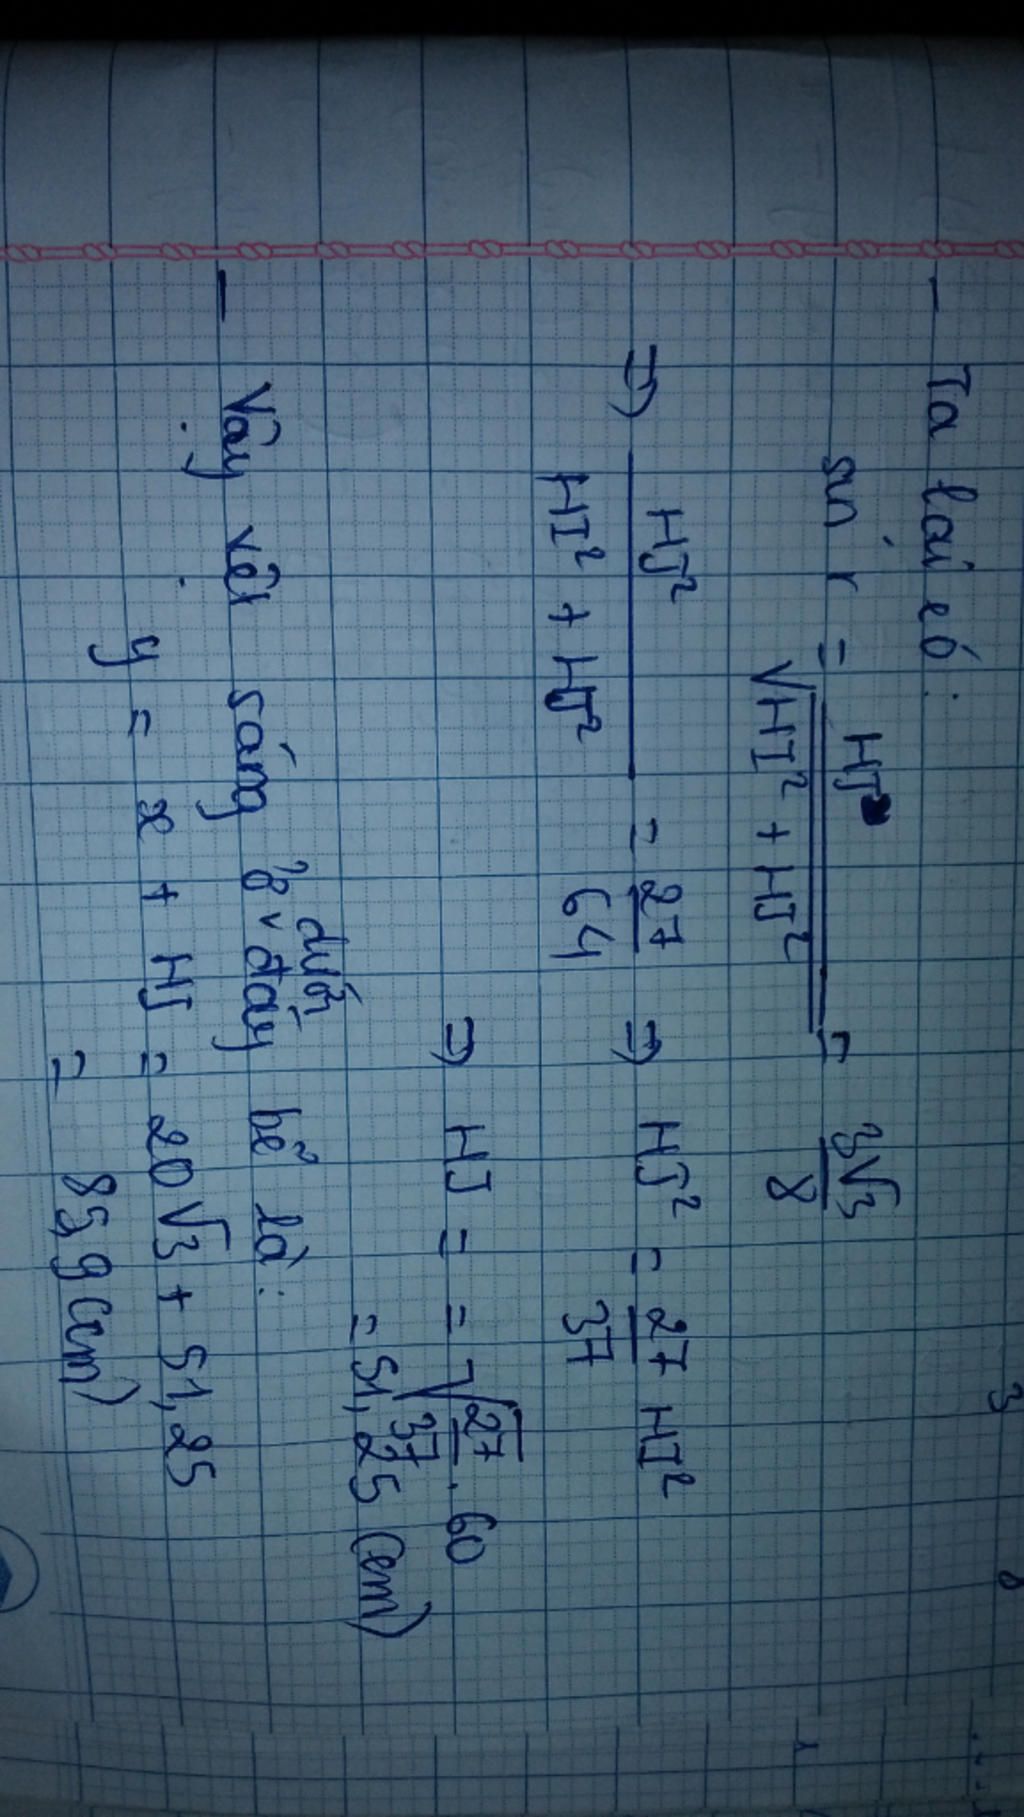 3 8
- Ta lại có:
sin r = HJ / √HI² + HJ² = 3√3 / 8
⇒ HJ² / HI² + HJ² = 27 / 64 ⇒ HJ² = 27 / 37 HI²
⇒ HJ = = √27 / 37 . 60
= 51,25 (cm)
dưới
- Vậy vệt sáng ở v đáy bể là:
y = x + HJ = 20√3 + 51,25
= 85,9 (cm)